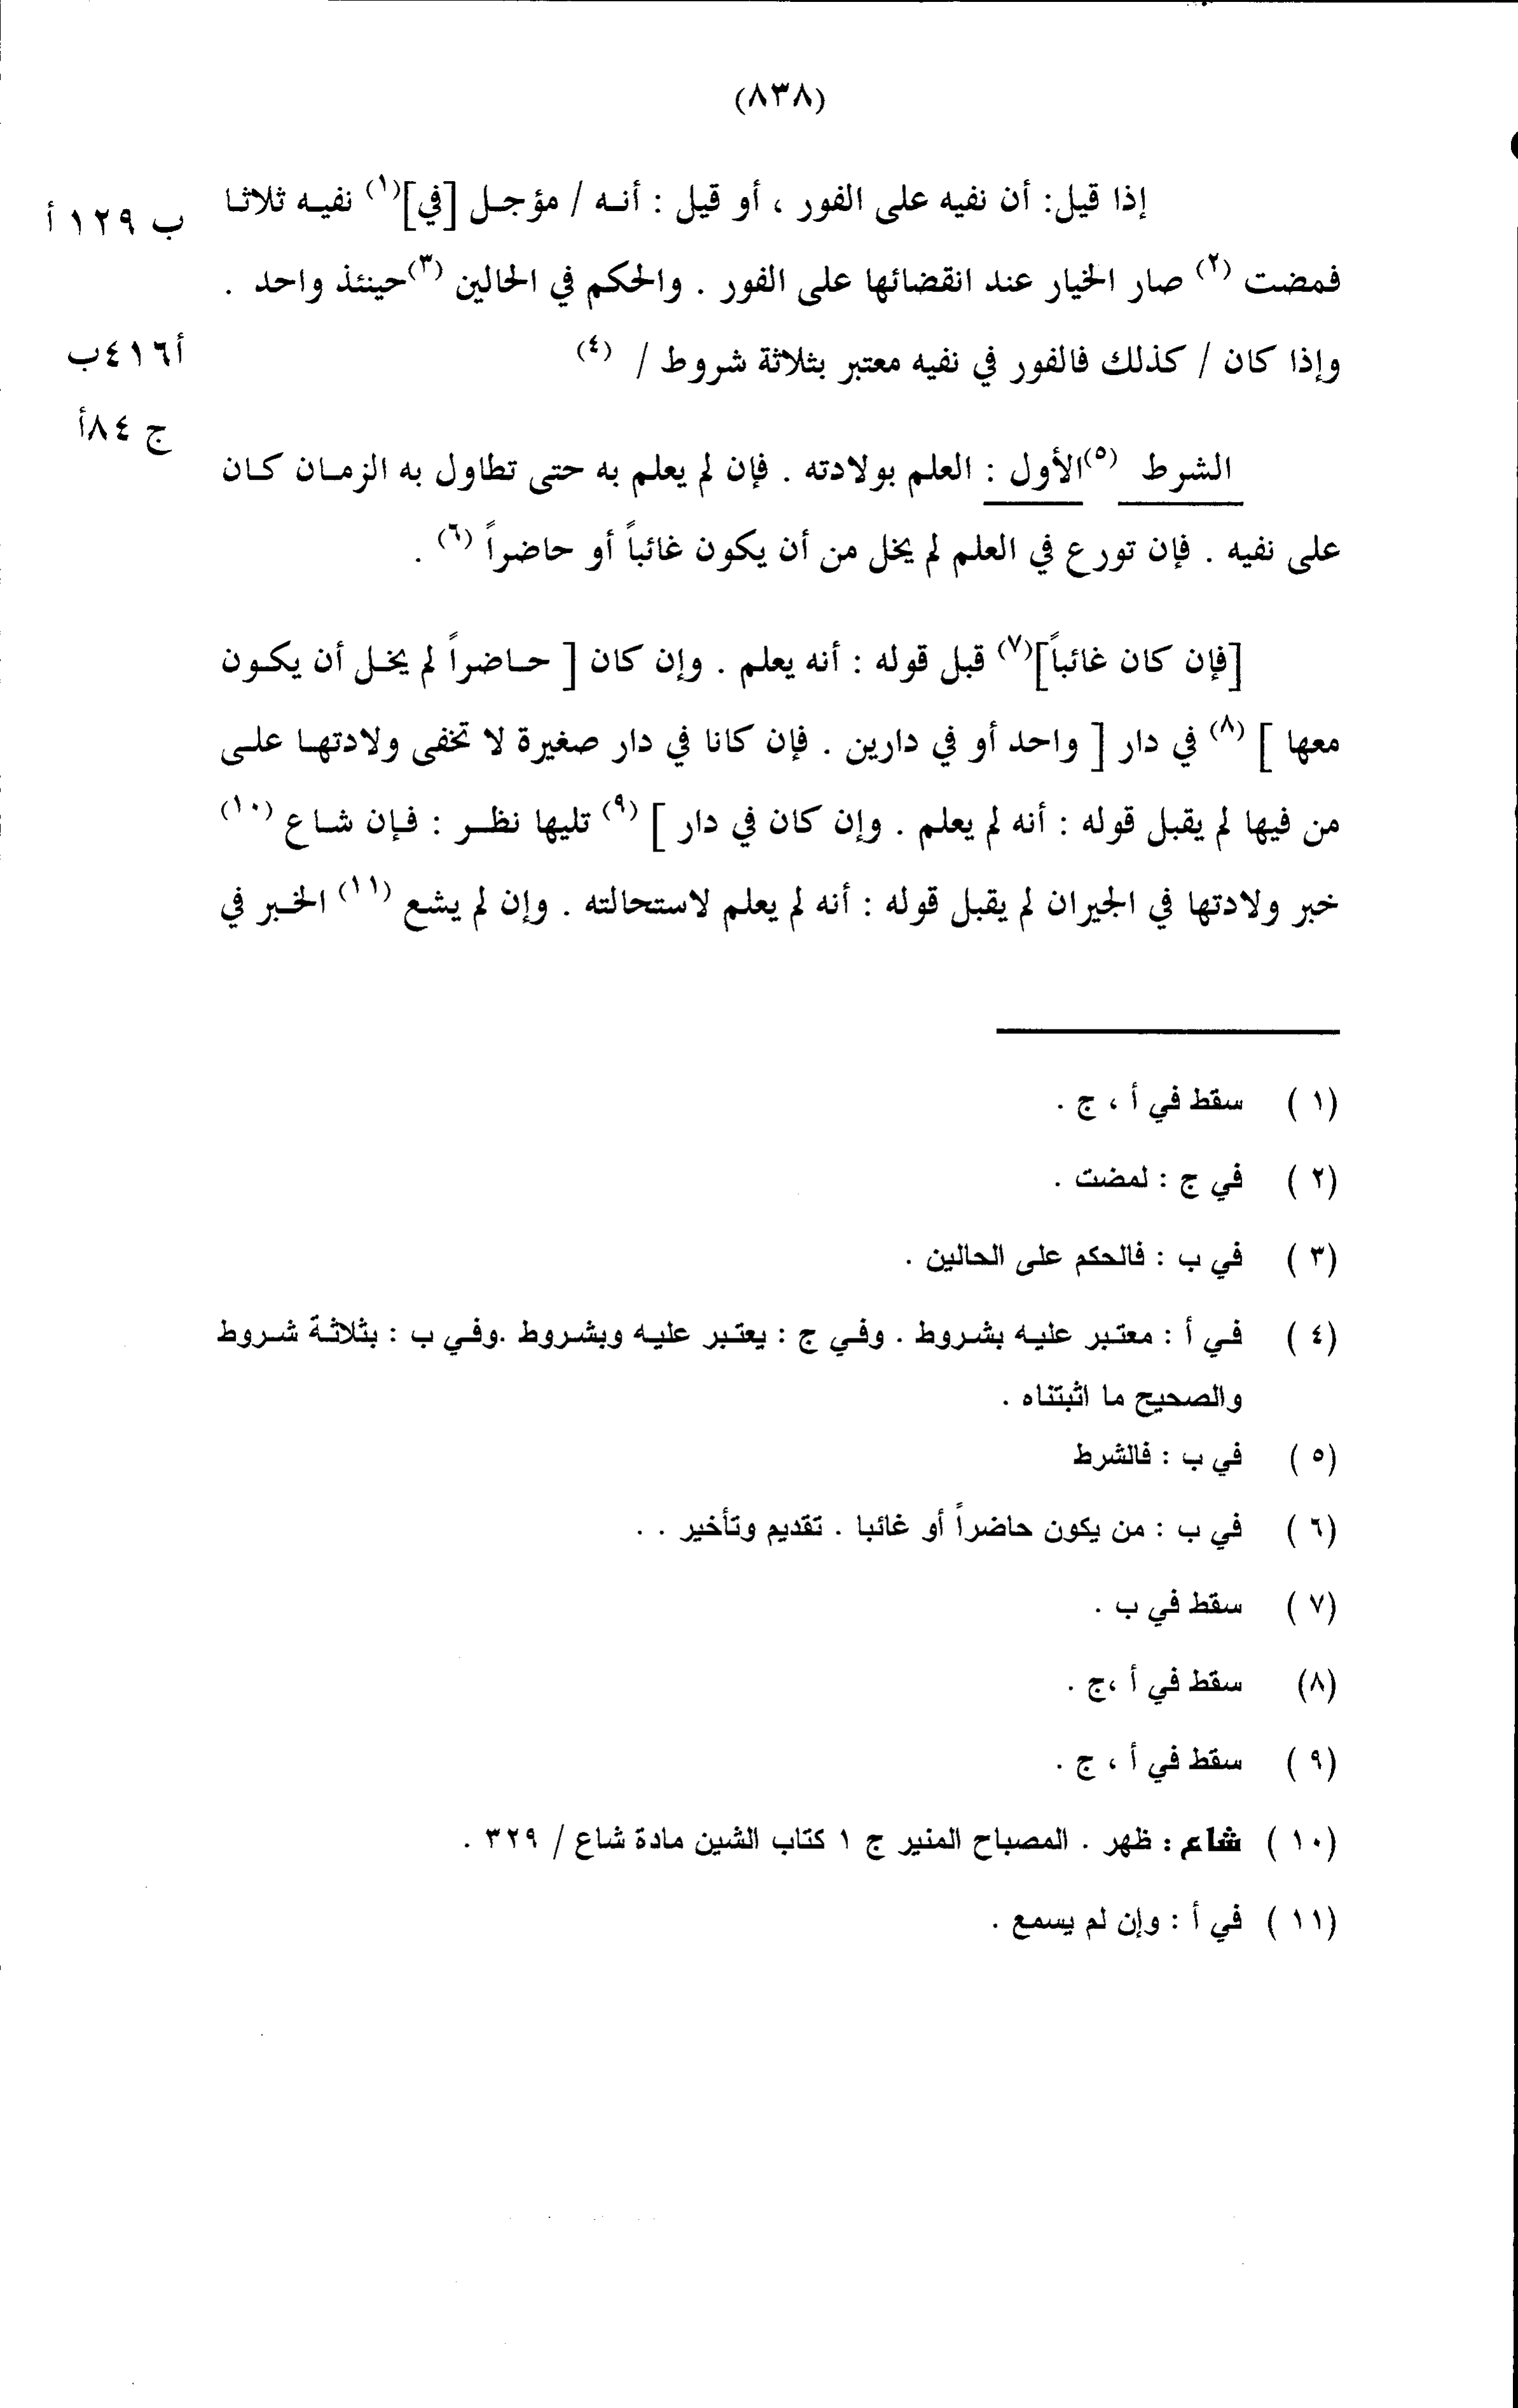 (٨٣٨)
إذا قيل: أن نفيه على الفور ، أو قيل : أنـه / مؤجـل [في](١) نفيـه ثلاثـا
ب ١٢٩ أ
فمضت (٢) صار الخيار عند انقضائها على الفور . والحكم في الحالين (٣)حينئذ واحد .
وإذا كان / كذلك فالفور في نفيه معتبر بثلاثة شروط / (٤)
أ٤١٦ب
ج ٨٤أ
الشرط (٥)الأول : العلم بولادته . فإن لم يعلم به حتى تطاول به الزمـان كـان
على نفيه . فإن تورع في العلم لم يخل من أن يكون غائباً أو حاضراً (٦) .
[فإن كان غائباً](٧) قبل قوله : أنه يعلم . وإن كان [ حـاضراً لم يخـل أن يكـون
معها ] (٨) في دار [ واحد أو في دارين . فإن كانا في دار صغيرة لا تخفى ولادتهـا علـى
من فيها لم يقبل قوله : أنه لم يعلم . وإن كان في دار ] (٩) تليها نظـر : فـإن شـاع (١٠)
خبر ولادتها في الجيران لم يقبل قوله : أنه لم يعلم لاستحالته . وإن لم يشع (١١) الخـبر في
(١) سقط في أ ، ج .
(٢) في ج : لمضت .
(٣) في ب : فالحكم على الحالين .
(٤) فـي أ : معتـبر عليـه بشـروط . وفـي ج : يعتـبر عليـه وبشـروط .وفـي ب : بثلاثـة شـروط
والصحيح ما اثبتناه .
(٥) في ب : فالشرط
(٦) في ب : من يكون حاضراً أو غائبا . تقديم وتأخير . .
(٧) سقط في ب .
(٨) سقط في أ ،ج .
(٩) سقط في أ ، ج .
(١٠) شاع : ظهر . المصباح المنير ج ١ كتاب الشين مادة شاع / ٣٢٩ .
(١١) في أ : وإن لم يسمع .